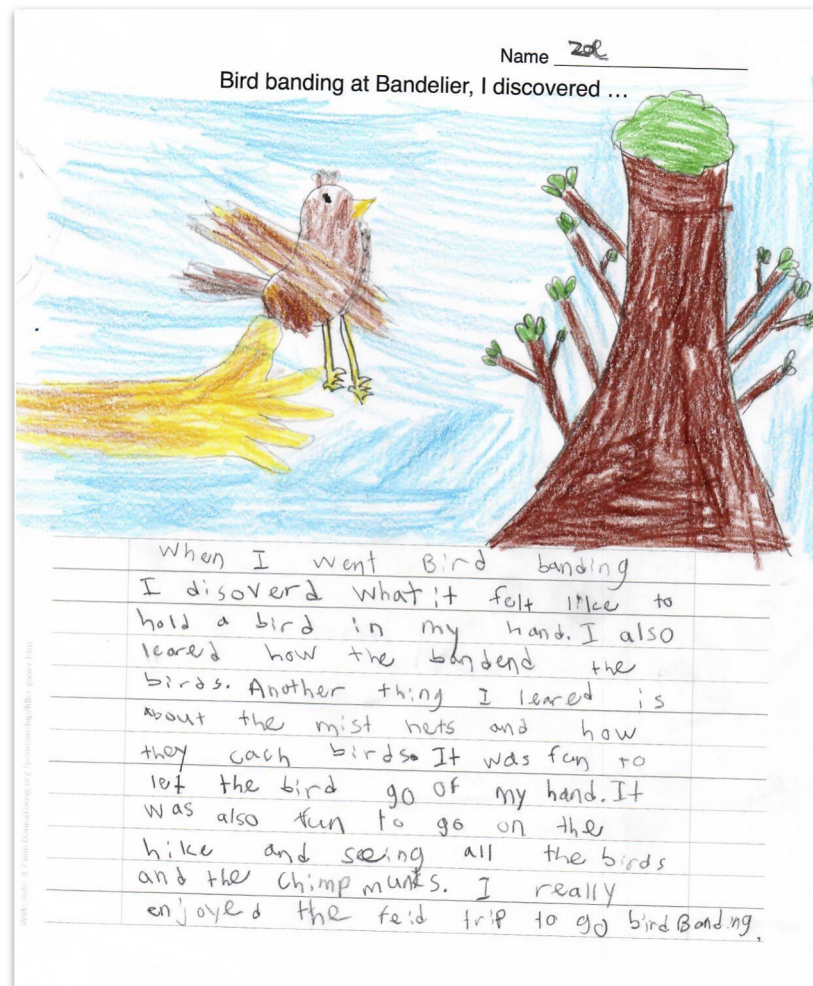 Name Zoe
Bird banding at Bandelier, I discovered ...
When I went Bird banding
I disoverd what it felt like to
hold a bird in my hand. I also
leared how the bandend the
birds. Another thing I leared is
about the mist nets and how
they cach birds. It was fun to
let the bird go of my hand. It
was also fun to go on the
hike and seeing all the birds
and the chimpmunks. I really
enjoyed the feid trip to go bird Banding.